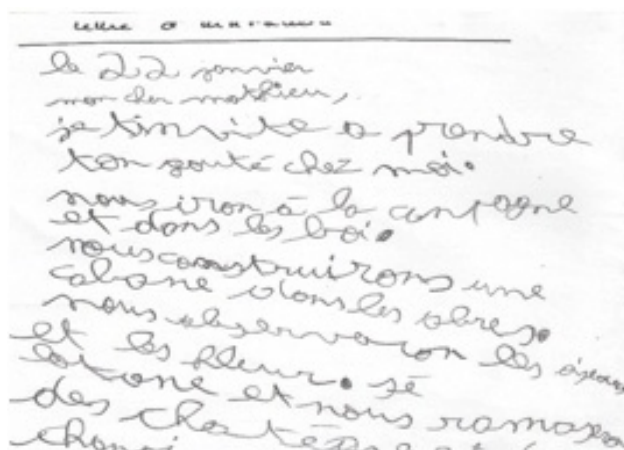 le 22 janvier
mon cher mathieu,
je t'invite a prendre
ton gouté chez moi.
nous iron à la canpagne
et dans les boi.
nous construirons une
cabane dans les abres.
nous observaron les
et les fleur. sé
lotone et nous ramason
des